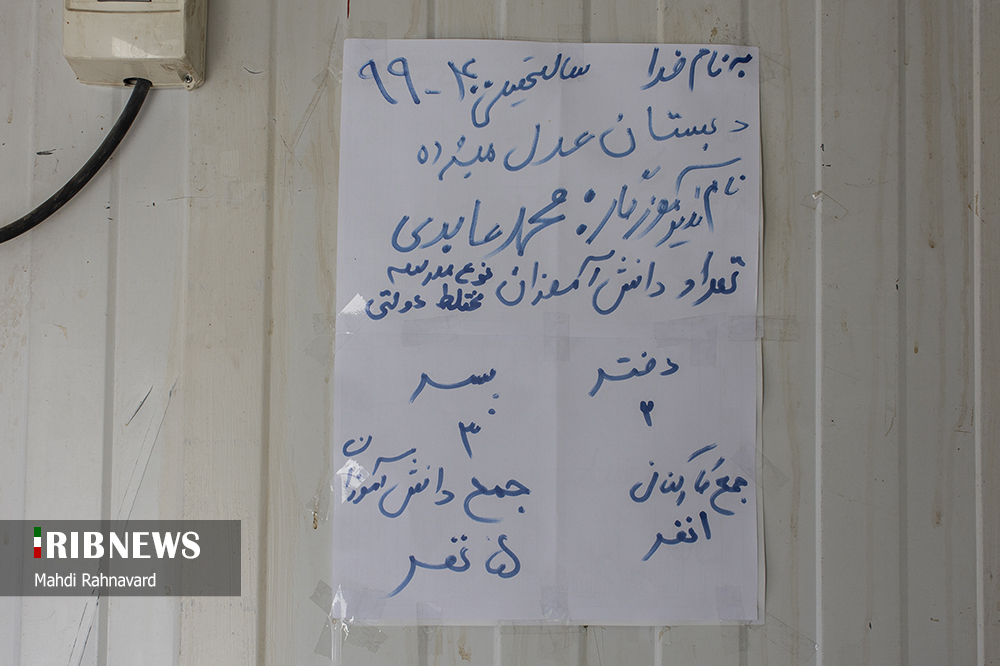 به نام خدا سال تحصیلی ۴۰۰-۹۹
دبستان عدل
نام مدیر آموزگار: محمد عابدی
تعداد دانش آموزان نوع مدرسه
مختلط دولتی
دختر پسر
۲ ۳
جمع کارکنان جمع دانش آموزان
۱ نفر ۵ نفر
RIBNEWS
Mahdi Rahnavard